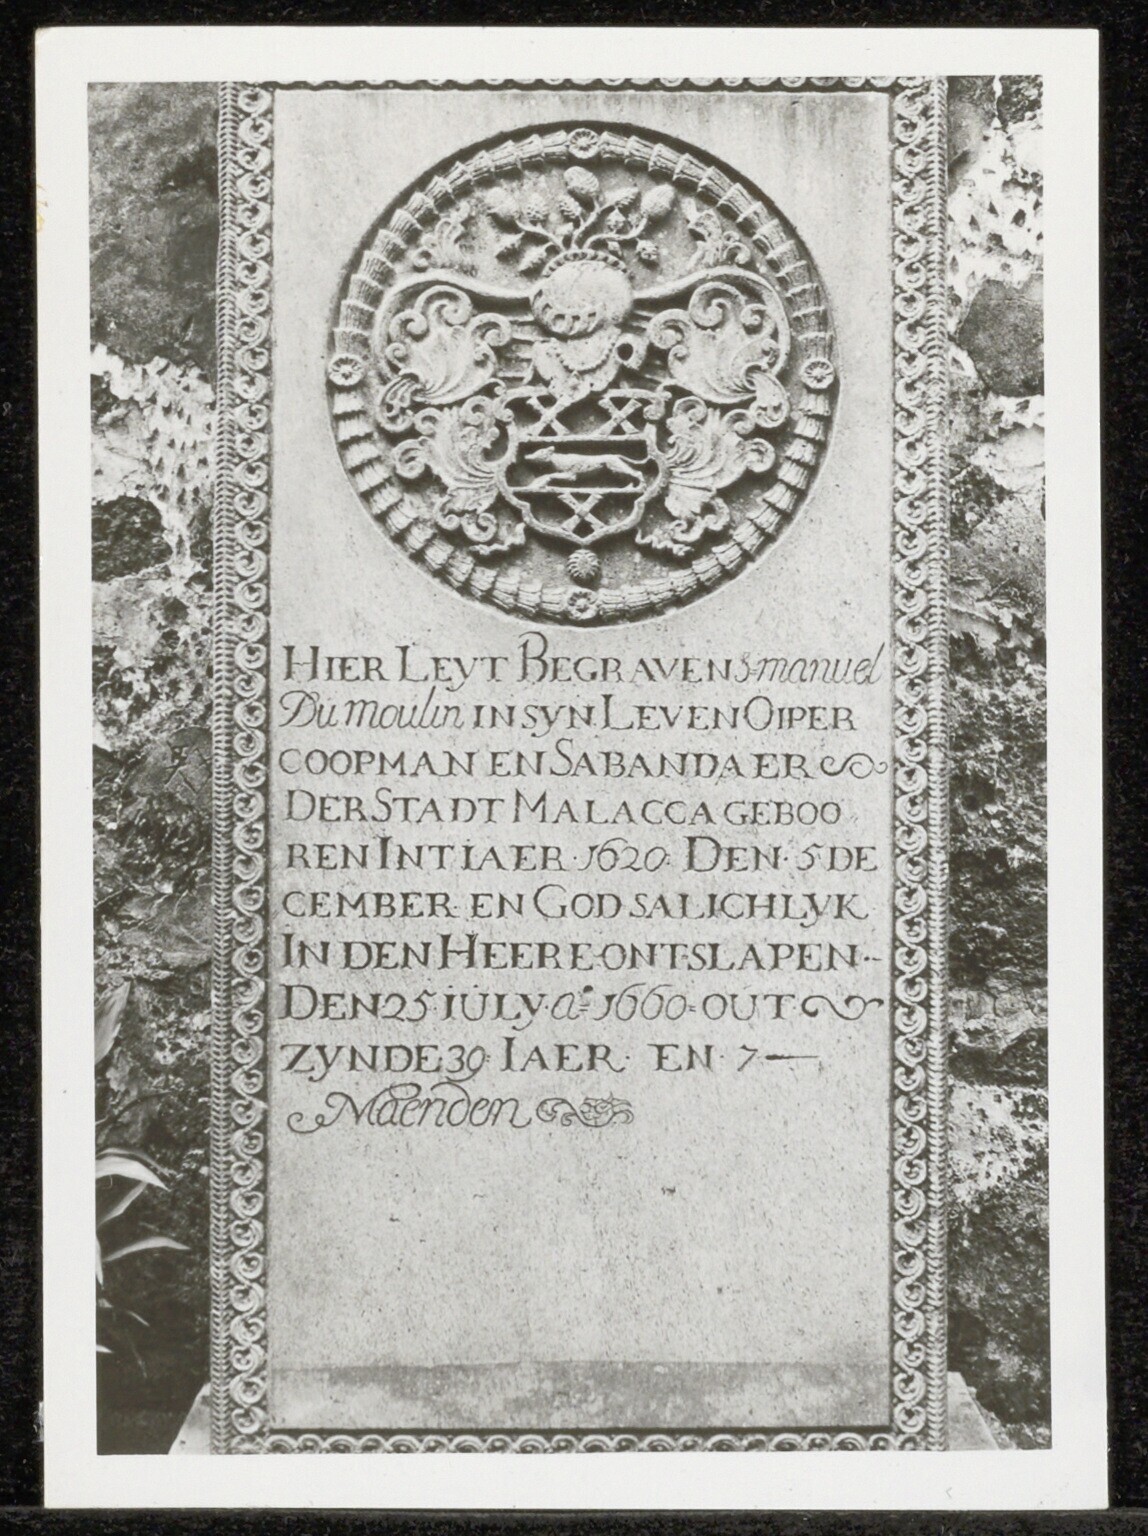 HIER LEYT BEGRAVEN Emanuel
Du moulin IN SYN LEVEN OPPER
COOPMAN EN SABANDAER
DER STADT MALACCA GEBOO
REN INT IAER · 1620 · DEN · 5 DE
CEMBER EN GOD SALICHLYK
IN DEN HEERE ONTSLAPEN
DEN 25 · IULY · Aº 1660 = OUT
ZYNDE 39 IAER · EN · 7 —
Maenden